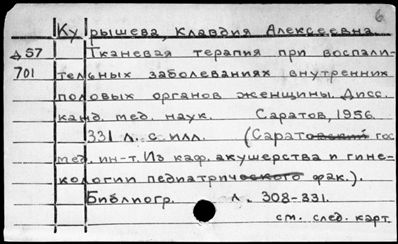 6
Курышева, Клавдия Алексеевна.
Д57 Тканевая терапия при воспали-
701 тельных заболеваниях внутренних
половых органов женщины. Дисс.
канд. мед. наук. Саратов, 1956.
331 л. с илл. (Саратовский гос
мед. ин-т. Из каф. акушерства и гине-
кологии педиатрического фак.).
Библиогр. л. 308-331.
см. след. карт.